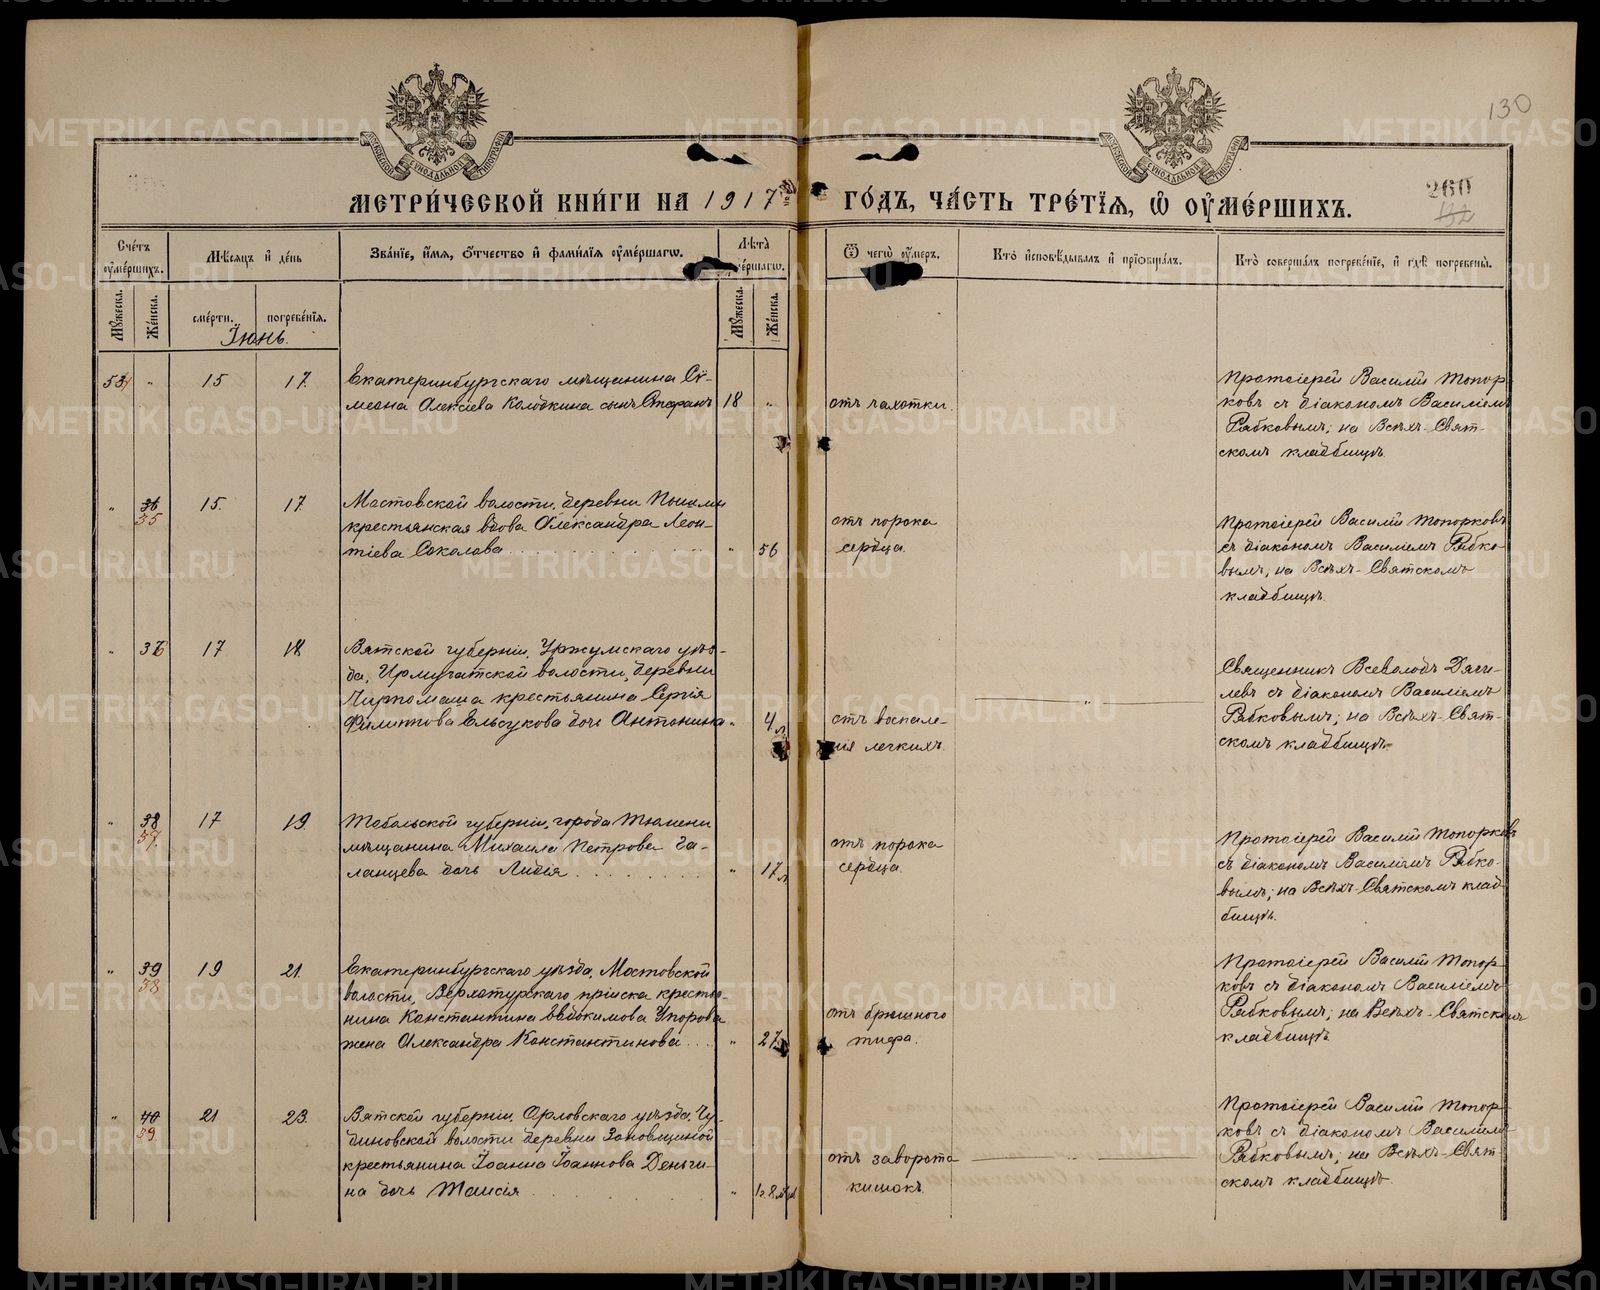 130
260
МЕТРИ́ЧЕСКОЙ КНИ́ГИ НА 1917 ГО́ДЪ, ЧА́СТЬ ТРЕ́ТІѦ, Ѡ ОУ҆МЕ́РШИХЪ.
Сче́тъ оу҆ме́ршихъ.
Мѣ́сяцъ и҆ де́нь
Зва́нїе, и҆́мя, ѻ҆́тчество и҆ фамі́лїя оу҆ме́ршагѡ.
Лѣ́та
Ѿ чегѡ̀ оу҆́меръ.
Кто̀ и҆сповѣ́дывалъ и҆ прїѡбща́лъ.
Кто̀ соверша́лъ погребе́нїе, и҆ гдѣ̀ погребены̀.
Мꙋ́жеска.
Же́нска.
сме́рти.
погребе́нїя.
Мꙋ́жеска.
Же́нска.
Іюнь.
53
"
15
17.
Екатеринбургскаго мѣщанина Сѵ-
меона Алексіева Колобкина сынъ Стефанъ
18
"
отъ чахотки.
Протоіерей Василій Топор-
ковъ съ діакономъ Василіемъ
Рябковымъ; на Всѣхъ-Свят-
скомъ кладбищѣ.
"
36
35
15.
17.
Мостовской волости, деревни Пышмы
крестьянская вдова Александра Леон-
тіева Соколова
"
56
отъ порока
сердца.
Протоіерей Василій Топорковъ
съ діакономъ Василіемъ Рябко-
вымъ, на Всѣхъ-Святскомъ
кладбищѣ.
"
36
17
18
Вятской губерніи, Уржумскаго уѣз-
да, Ирмучатской волости, деревни
крестьянина Сергія
Филиппова Ельсукова дочь Антонина
"
4 л
отъ воспале-
нія легкихъ.
"
Священникъ Всеволодъ Дяги-
левъ съ діакономъ Василіемъ
Рябковымъ; на Всѣхъ-Свят-
скомъ кладбищѣ.
"
38
37.
17
19.
Тобольской губерніи, города Тюмени
мѣщанина Михаила Петрова Га-
ланцева дочь Лидія
"
17 л
отъ порока
сердца.
Протоіерей Василій Топорковъ
съ діакономъ Василіемъ Рябко-
вымъ; на Всѣхъ-Святскомъ клад-
бищѣ.
"
39
38
19
21.
Екатеринбургскаго уѣзда, Мостовской
волости, Верхотурскаго пріиска крестья-
нина Константина Евдокимова Упорова
жена Александра Константинова
"
27
отъ брюшного
тифа.
Протоіерей Василій Топор-
ковъ съ діакономъ Василіемъ
Рябковымъ; на Всѣхъ-Святскомъ
кладбищѣ
"
40
39.
21
23.
Вятской губерніи, Орловскаго уѣзда, Чу-
диновской волости деревни Зоновщиной
крестьянина Іоанна Іоаннова Деньги-
на дочь Таисія
"
отъ заворота
кишокъ.
Протоіерей Василій Топор-
ковъ съ діакономъ Василіемъ
Рябковымъ; на Всѣхъ-Свят-
скомъ кладбищѣ.
METRIKI.GASO-URAL.RU